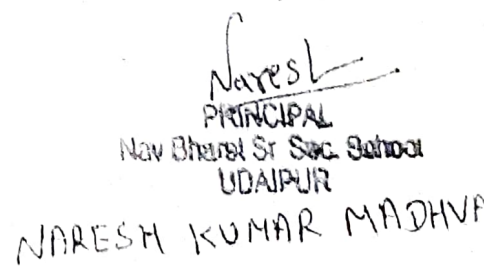 Naresh
PRINCIPAL
Nav Bharat Sr Sec. School
UDAIPUR
NARESH KUMAR MADHVA